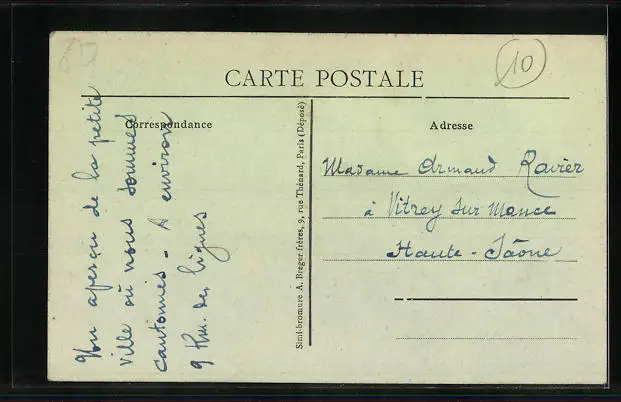 10
CARTE POSTALE
Correspondance
Adresse
aperçu de la petite
ville où nous sommes
cantonnés - A environ
9 Km. des lignes
Simi-bromure A. Breger frères, 9, rue Thénard, Paris (Déposé)
Madame Armand Ravier
à Vitrey sur Mance
Haute-Saône